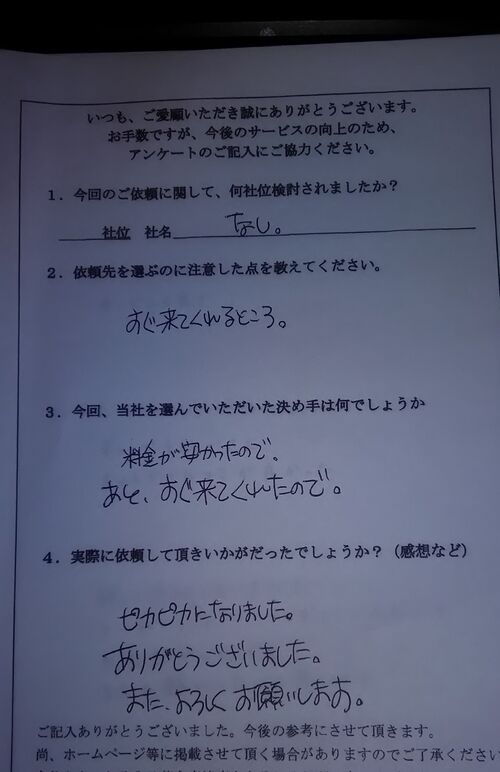 いつも、ご愛顧いただき誠にありがとうございます。
お手数ですが、今後のサービスの向上のため、
アンケートのご記入にご協力ください。
1．今回のご依頼に関して、何社位検討されましたか？
社位　社名　なし。
2．依頼先を選ぶのに注意した点を教えてください。
すぐ来てくれるところ。
3．今回、当社を選んでいただいた決め手は何でしょうか
料金が安かったので。
あと、すぐ来てくれたので。
4．実際に依頼して頂きいかがだったでしょうか？（感想など）
ピカピカになりました。
ありがとうございました。
また、よろしくお願いします。
ご記入ありがとうございました。今後の参考にさせて頂きます。
尚、ホームページ等に掲載させて頂く場合がありますのでご了承ください